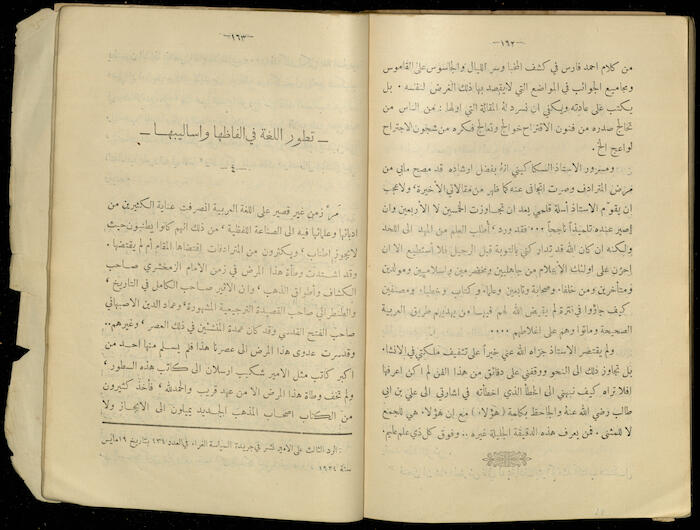 —١٦٢—
من كلام احمد فارس في كشف المخبا وسر الليال والجاسوس على القاموس
ومجاميع الجوائب في المواضع التي لايقصد بها ذلك الغرض لنفسه . بل
يكتب على عادته ويكفي ان نسرد له المقالة التي اولها : من الناس من
تخالج صدره من فنون الاقتراح خوالج وتعالج فكره من شجون الاجتراح
لواعج الخ .
وسسرور الاستاذ السكاكيني انهُ بفضل ارشاده قد مصح مابي من
مرض المترادف وصرت اتجافى عنه كما ظهر من مقالاتي الأخيرة ، ولاعجب
ان يقوّم الاستاذ أسلة قلمي بعد ان تجاوزت الخمسين لا الأربعين وان
اصير عنده تلميذاً ناجحاً ... فقد ورد : أطلب العلم من المهد الى اللحد
ولكنه ان كان الله قد تداركني بالتوبة قبل الرحيل فلا أستطيع الا ان
احزن على اولئك الأعلام من جاهليين ومخضرمين واسلاميين ومولدين
ومتأخرين ومن خلفاء وصحابة وتابعين وعلماء وكتاب وخطباء ومصنفين
كيف جاؤوا في فترة لم يقيض الله لهم فيها من يهديهم طريق العربية
الصحيحة وماتوا وهم على اغلاطهم ....
ولم يقتصر الاستاذ جزاه الله عني خيراً على تثقيف ملكتي في الانشا.
بل تجاوز ذلك الى النحو ووقفني على دقائق من هذا الفن لم اكن اعرفها
افلا تراه كيف نبهني الى الخطأ الذي اخطأته في اشارتي الى علي بن ابي
طالب رضي الله عنهُ والجاحظ بكلمة (هؤلاء) مع ان هؤلاء هي للجمع
لا للمثنى . فمن يعرف هذه الدقيقة الجليلة غيره .. وفوق كل ذي علم عليم.
—١٦٣—
— تطور اللغة في الفاظها واساليبها —
—٤—
مَرَّ زمن غير قصير على اللغة العربية انصرفت عناية الكثيرين من
ادبائها وعلمائها فيه الى الصناعة اللفظية ، من ذلك انهم كانوا يطنبون حيث
لايجوز اطناب ، ويكثرون من المترادفات اقتضاها المقام أم لم يقتضها .
وقد اشتدت وطأة هذا المرض في زمن الامام الزمخشري صاحب
الكشاف وأطواق الذهب ، وابن الاثير صاحب الكامل في التاريخ ،
والطنطراني صاحب القصيدة الترجيعية المشهورة ، وعماد الدين الاصبهاني
صاحب الفتح القدسي وقد كان عمدة المنشئين في ذلك العصر ، وغيرهم..
وقد سرت عدوى هذا المرض الى عصرنا هذا فلم يسلم منها احد من
اكبر كاتب مثل الامير شكيب ارسلان الى كاتب هذه السطور ،
ولم تخف وطاة هذا المرض الا من عهد قريب والحمدلله ، فأخذ كثيرون
من الكتاب اصحاب المذهب الجديد يميلون الى الايجاز ولا
الرد الثالث على الامير نشر في جريدة السياسة الغراء في العدد ١٣٦ بتاريخ ١٩ مايس
سنة ١٩٢٤